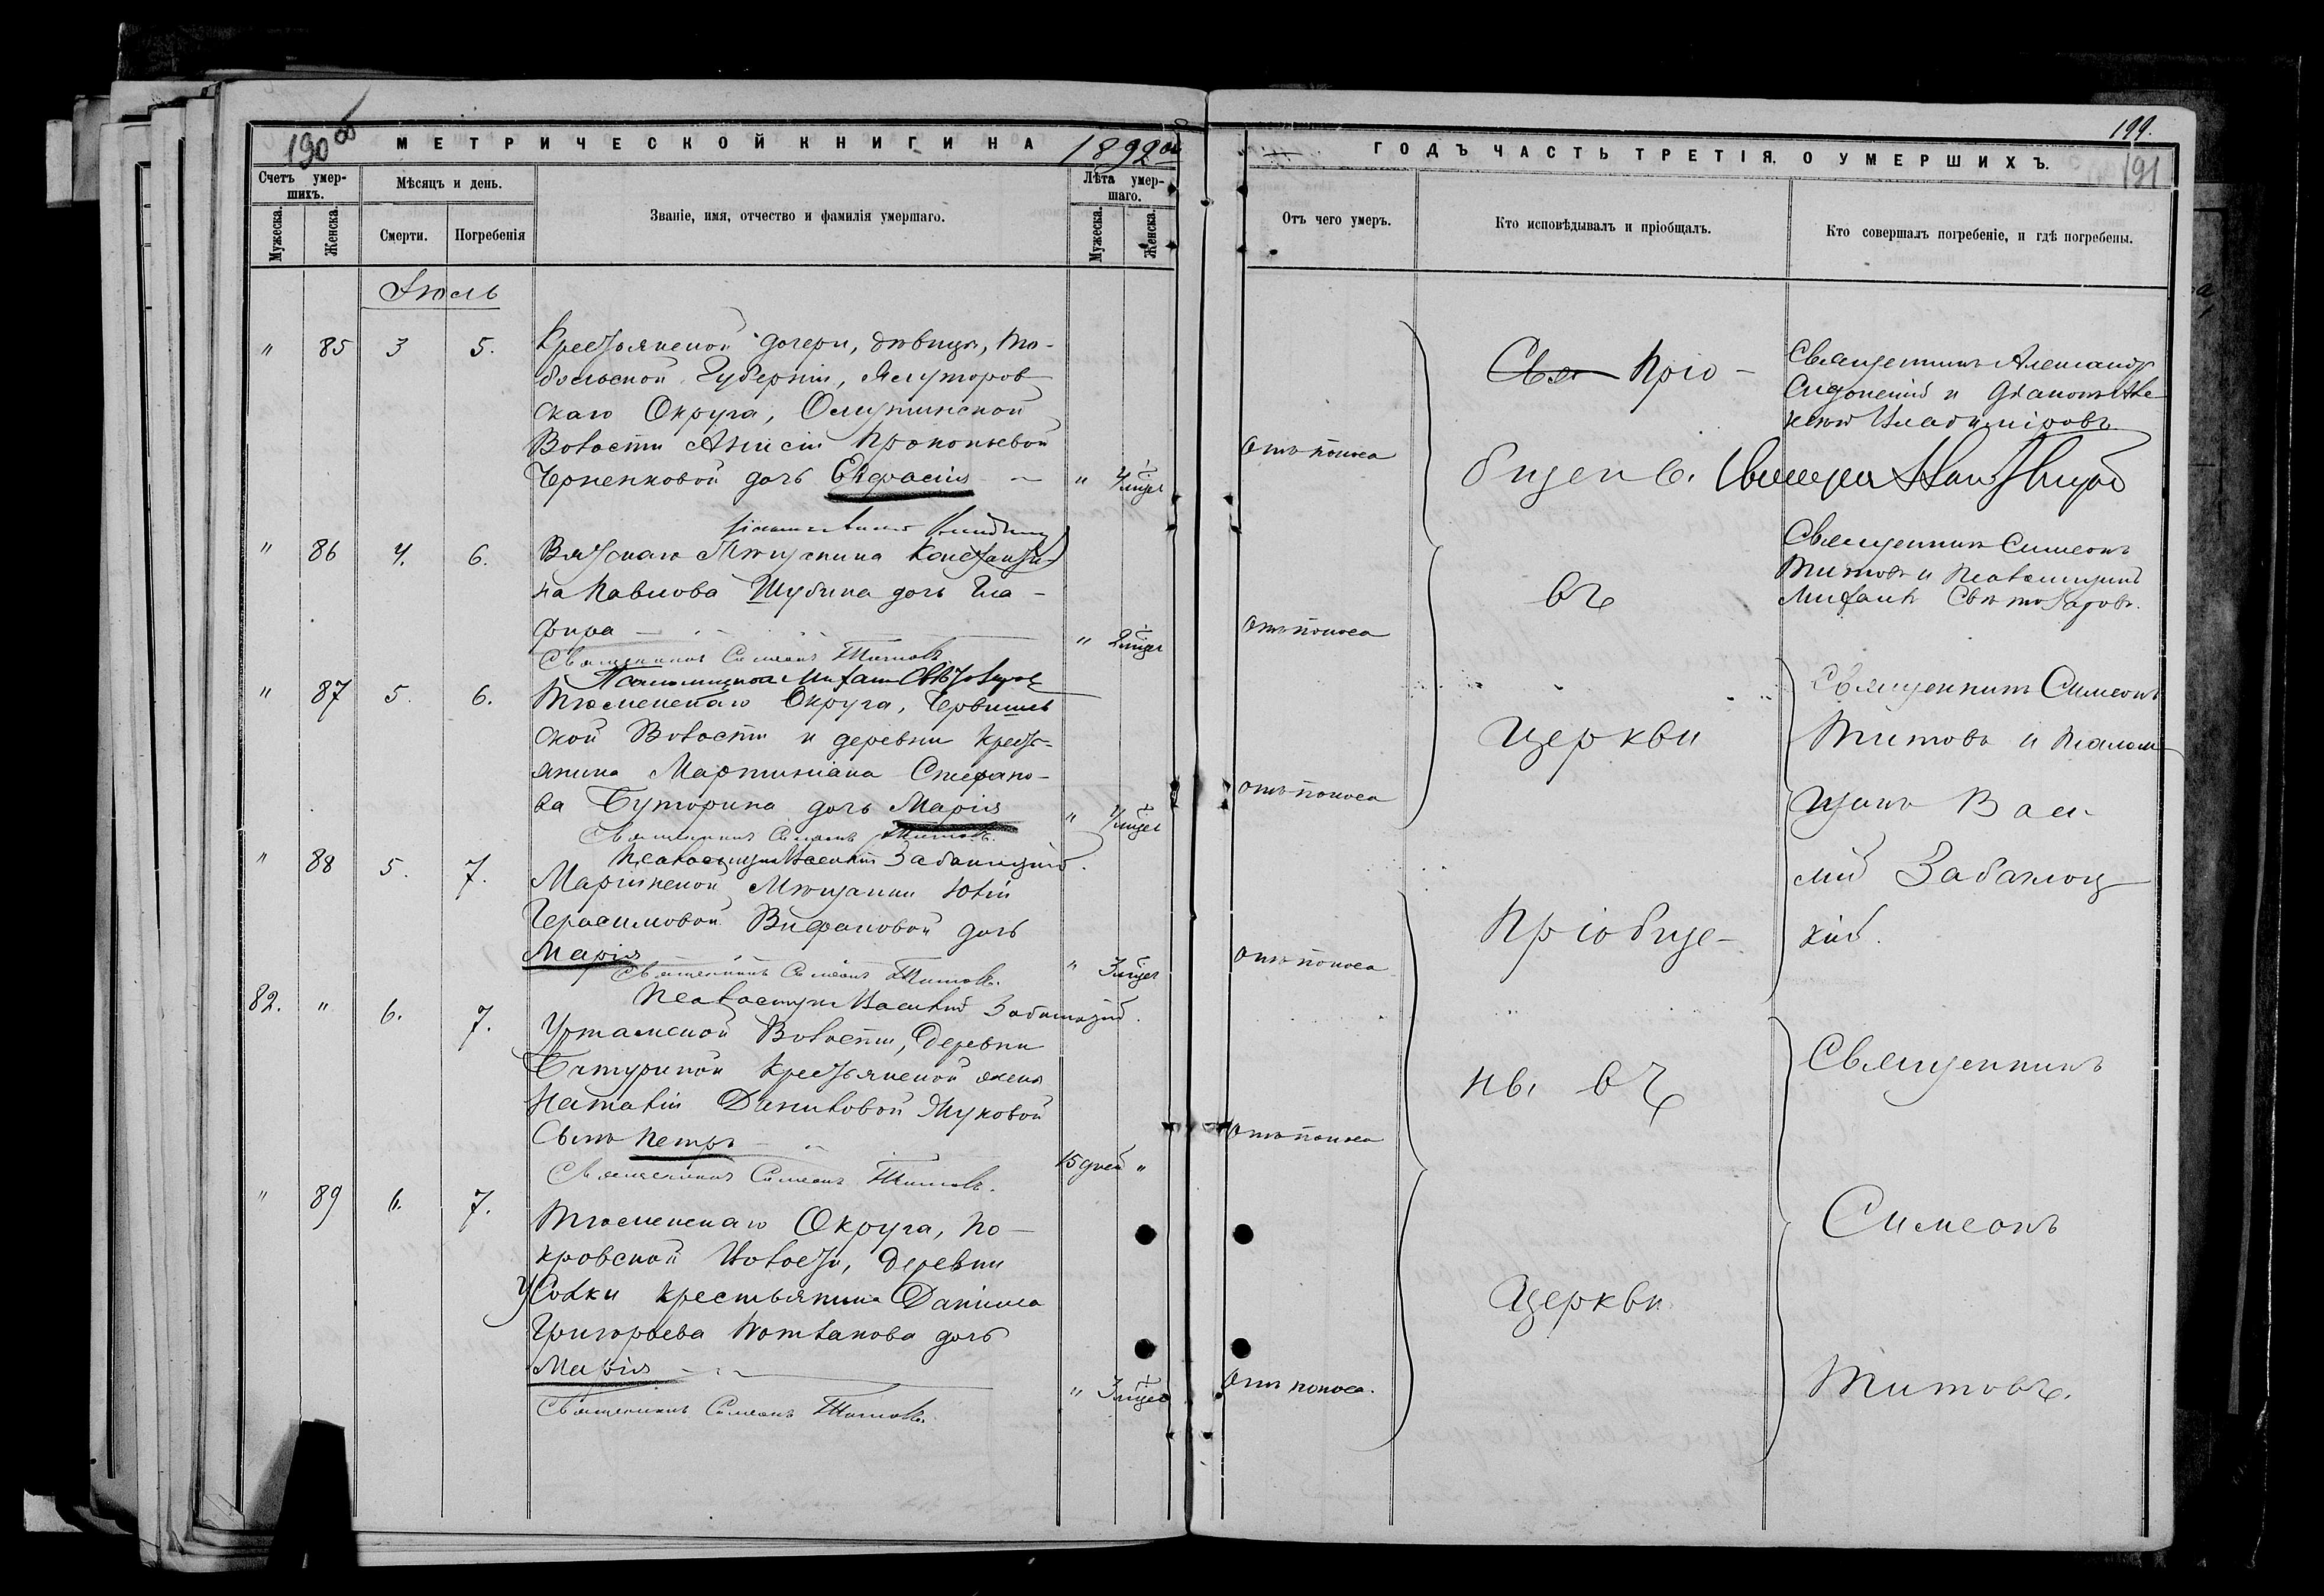 190 об
МЕТРИЧЕСКОЙ КНИГИ НА 1892 й
Счетъ умер-
шихъ.
Мѣсяцъ и день.
Званіе, имя, отчество и фамилія умершаго.
Лѣта умер-
шаго.
Мужеска.
Женска.
Смерти.
Погребенія
Мужеска.
Женска.
Іюль
" 85 3 5. Крестьянской дочери, дѣвицы, То-
больской Губерніи, Ялуторов
скаго Округа, Омутинской
Волости Анисіи Прокопьевой
Черненковой дочь Евфросія "
" 86 4. 6. Вятскаго Мѣщанина Константи-
на Павлова Шубина дочь Гла-
фира " 2 мѣся
Священникъ Симеонъ Титовъ
Псаломщикъ Михаилъ
" 87 5. 6. Тюменскаго Округа, Червишев
ской Волости и деревни Кресть-
янина Мартиніана Стефано-
ва Буторина дочь Марія "
Священникъ Симеонъ Титовъ.
Псаломщикъ Василій
" 88 5. 7. Маріинской Мѣщанки Юліи
Герасимовой Вифановой дочь
Марія " 3 мѣся
Священникъ Симеонъ Титовъ.
Псаломщикъ Василій
82. " 6. 7. Уктамской Волости, Деревни
Батуриной Крестьянской жены
Наталіи Даниловой Жуковой
Сынъ Петръ 15 дней "
Священникъ Симеонъ Титовъ.
" 89 6. 7. Тюменскаго Округа, По-
кровской Волости, Деревни
Усолки Крестьянина Даніила
Григорьева дочь
Марія " 3 мѣся
Священникъ Симеонъ Титовъ.
199.
191
ГОДЪ ЧАСТЬ ТРЕТІЯ. О УМЕРШИХЪ.
Отъ чего умеръ.
Кто исповѣдывалъ и пріобщалъ.
Кто совершалъ погребеніе, и гдѣ погребены.
Отъ поноса
Отъ поноса
Отъ поноса
Отъ поноса
Отъ поноса
Отъ поноса.
Свя Пріо-
бщенъ.
въ
церкви
Пріобще-
ны въ
Церкви.
Священникъ Александръ
Сидонскій и Діаконъ Але-
ксѣй Владиміровъ
Священникъ Симеонъ
Титовъ и Псаломщикъ
Михаилъ
Священникъ Симеонъ
Титовъ и Псалом-
щикъ Васи-
лій
Священникъ
Симеонъ
Титовъ.